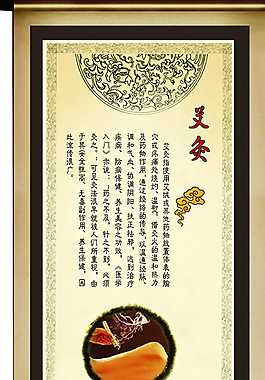 艾灸
艾灸指使用艾绒或其他药物放置体表的腧
穴或疼痛处烧灼、温熨，借灸火的温和热力
及药物作用，通过经络的传导，以温通经脉、
调和气血、协调阴阳、扶正祛邪，达到治疗
疾病、防病保健、养生美容之功效。《医学
入门》亦说：“药之不及，针之不到，必须
灸之。”可见灸法很早就被人们所重视，由
于其安全性高、无毒副作用、养生保健，因
此流传很广。